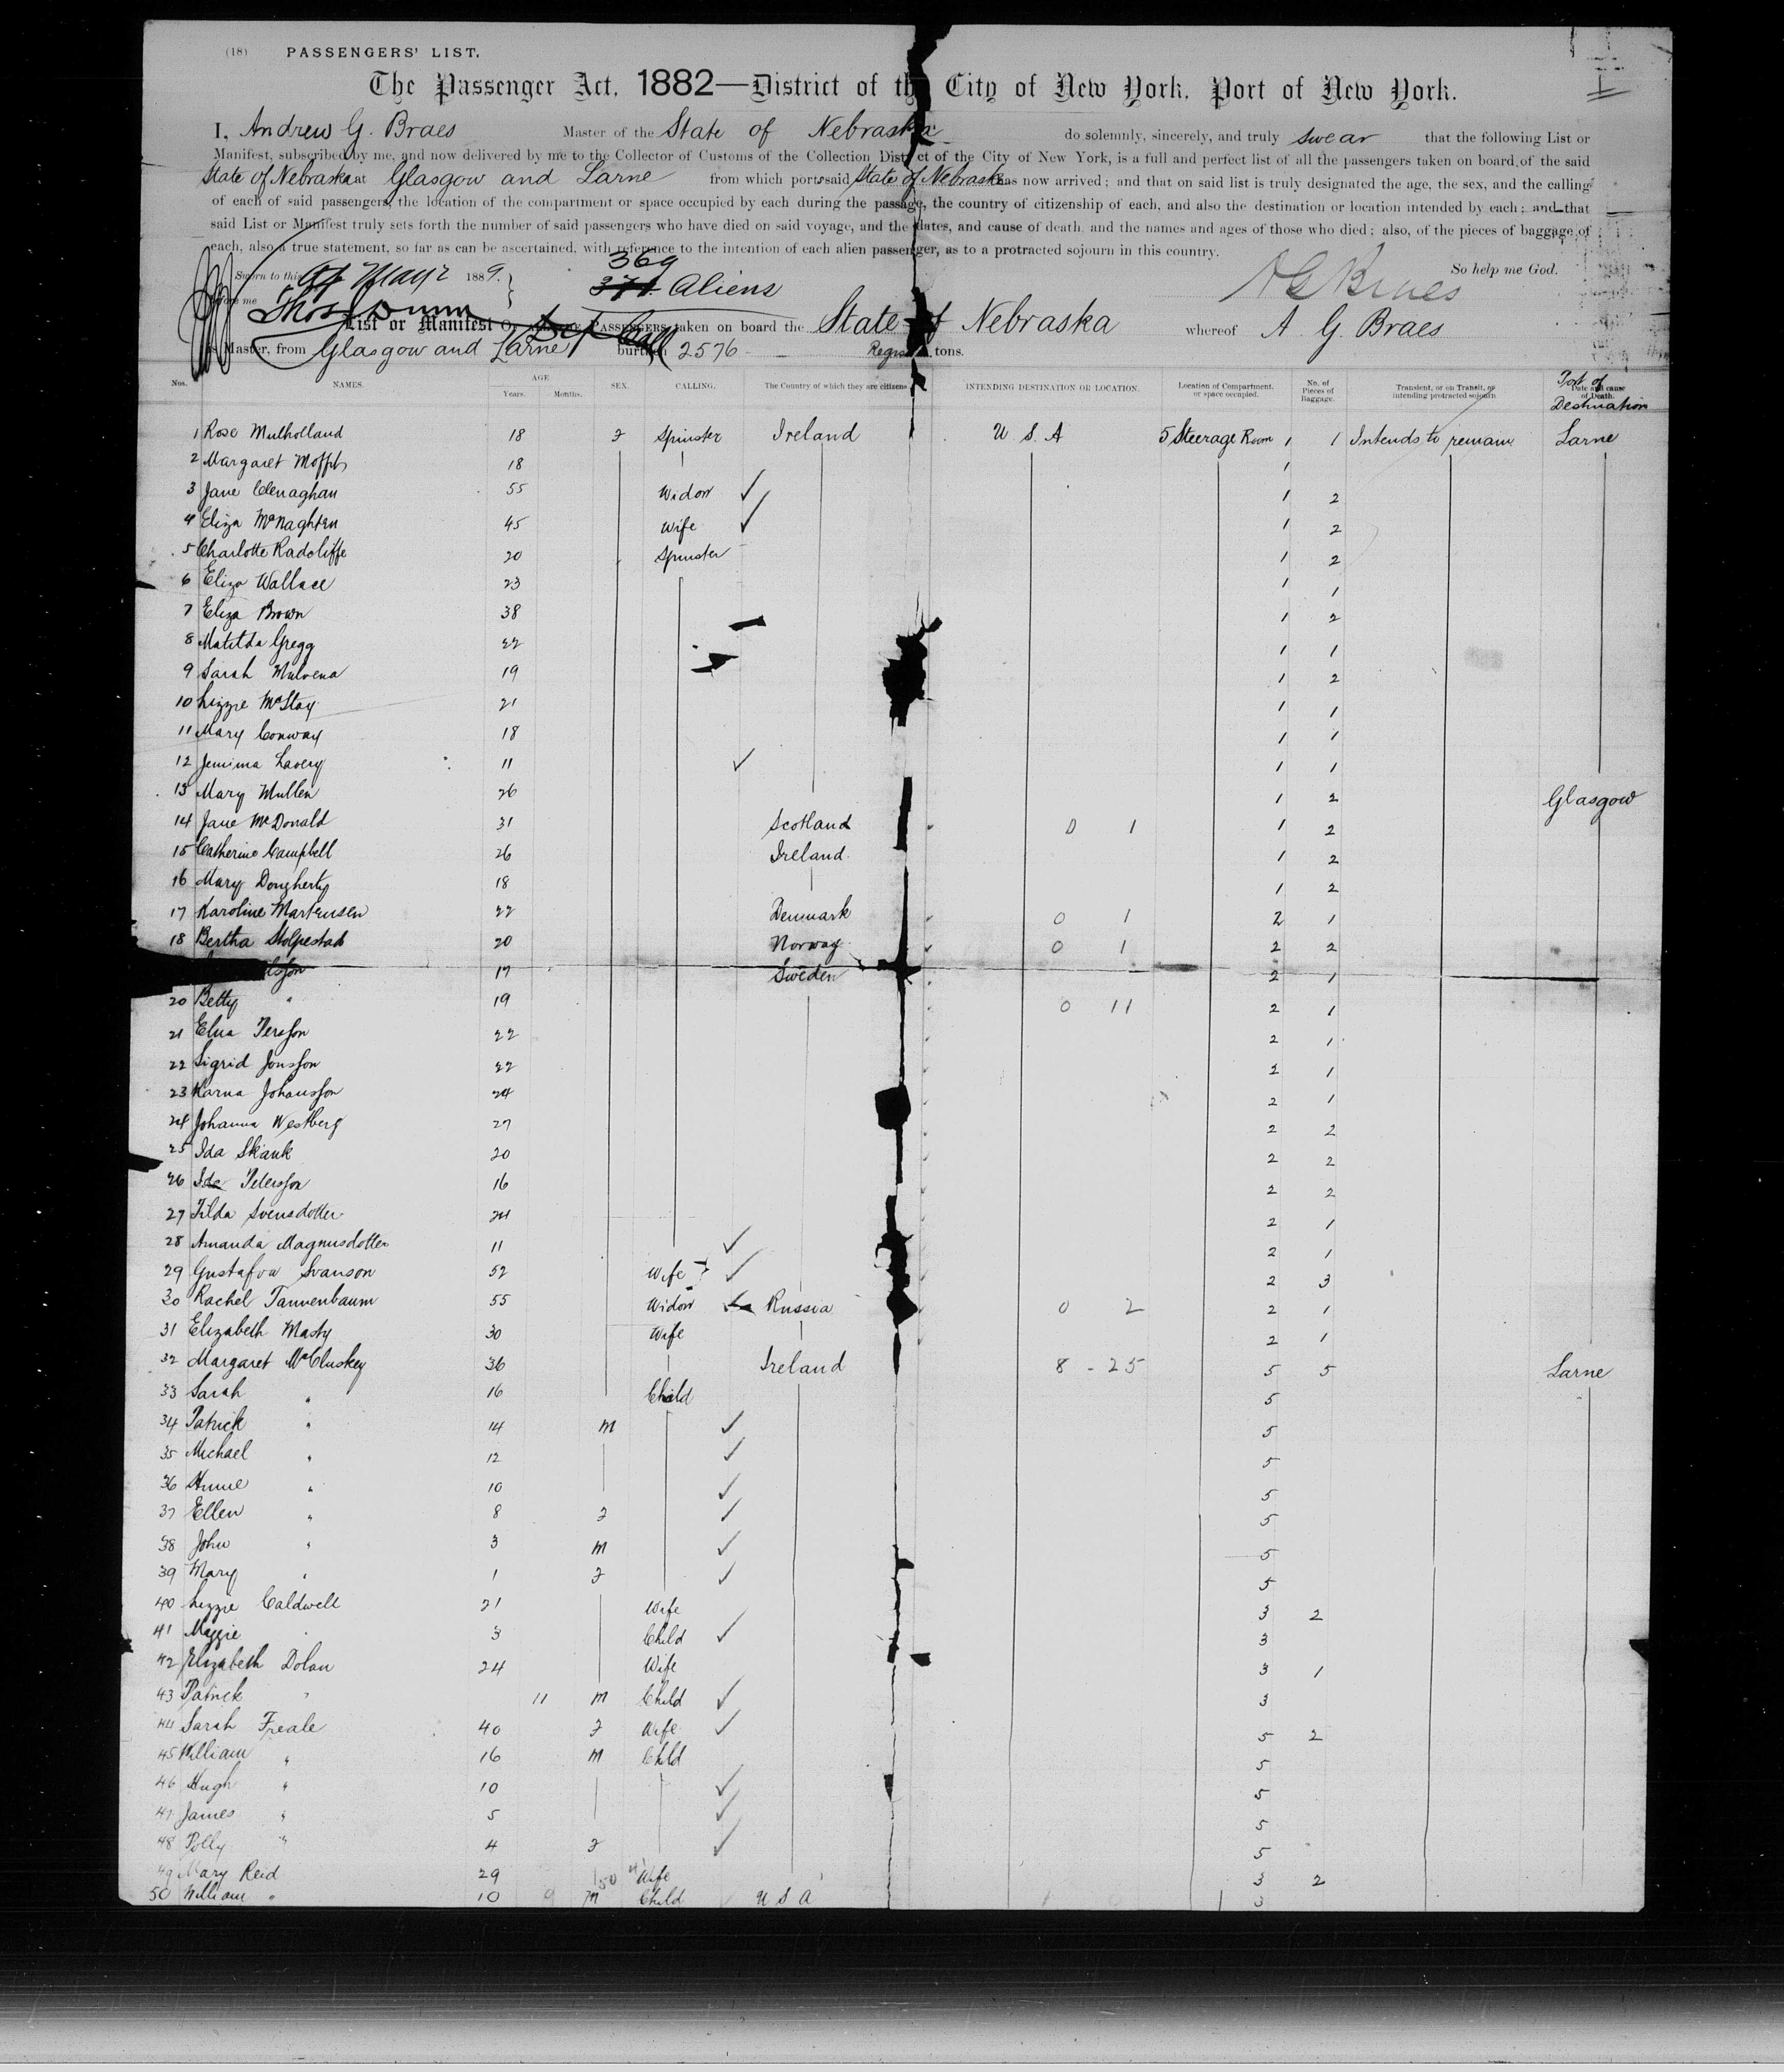 (18) PASSENGERS' LIST.
The Passenger Act, 1882—District of the City of New York, Port of New York.
I, Andrew G. Braes Master of the State of Nebraska do solemnly, sincerely, and truly swear that the following List or
Manifest, subscribed by me, and now delivered by me to the Collector of Customs of the Collection District of the City of New York, is a full and perfect list of all the passengers taken on board of the said
State of Nebraska at Glasgow and Larne from which ports said State of Nebraska has now arrived; and that on said list is truly designated the age, the sex, and the calling
of each of said passengers, the location of the compartment or space occupied by each during the passage, the country of citizenship of each, and also the destination or location intended by each; and that
said List or Manifest truly sets forth the number of said passengers who have died on said voyage, and the dates, and cause of death, and the names and ages of those who died; also, of the pieces of baggage of
each, also a true statement, so far as can be ascertained, with reference to the intention of each alien passenger, as to a protracted sojourn in this country.
369
Sworn to this May 1889. 371 Aliens So help me God.
before me Thos Dunn A G Braes
List or Manifest OF ALL THE PASSENGERS taken on board the State of Nebraska whereof A G. Braes
is Master, from Glasgow and Larne burthen 2576 Regis tons.
Nos. NAMES. AGE Years. Months. SEX. CALLING. The Country of which they are citizens. INTENDING DESTINATION OR LOCATION. Location of Compartment, or space occupied. No. of Pieces of Baggage. Transient, or on Transit, or intending protracted sojourn Date and cause of Death. Port of Destination
1 Rose Mulholland 18 f Spinster Ireland U S. A 5 Steerage Room 1 1 Intends to remain Larne
2 Margaret Moffet 18 1
3 Jane Clenaghan 55 Widow ✓ 1 2
4 Eliza McNaghten 45 Wife ✓ 1 2
5 Charlotte Radcliffe 20 Spinster 1 2
6 Eliza Wallace 23 1 1
7 Eliza Brown 38 1 2
8 Matilda Gregg 22 1 1
9 Sarah Mulvena 19 1 2
10 Lizzie McStay 21 1 1
11 Mary Conway 18 1 1
12 Jemima Lavery 11 ✓ 1 1
13 Mary Mullen 26 1 2 Glasgow
14 Jane McDonald 31 Scotland 0 1 1 2
15 Catherine Campbell 26 Ireland 1 2
16 Mary Dougherty 18 1 2
17 Karoline Martensen 22 Denmark 0 1 2 1
18 Bertha Stolpestad 20 Norway 0 1 2 2
17 Sweden 2 1
20 Betty " 19 0 11 2 1
21 Elna Persson 22 2 1
22 Sigrid Jonsson 22 2 1
23 Karna Johansson 24 2 1
24 Johanna Westberg 27 2 2
25 Ida Skank 20 2 2
26 Ida Petersson 16 2 2
27 Tilda Svensdotter 24 2 1
28 Amanda Magnusdotter 11 ✓ 2 1
29 Gustafva Svanson 52 Wife ✓ 2 3
30 Rachel Tannenbaum 55 Widow Russia 0 2 2 1
31 Elizabeth Masty 30 Wife 2 1
32 Margaret McCluskey 36 Ireland 8 - 25 5 5 Larne
33 Sarah " 16 Child 5
34 Patrick " 14 m ✓ 5
35 Michael " 12 ✓ 5
36 " 10 ✓ 5
37 Ellen " 8 f ✓ 5
38 John " 3 m ✓ 5
39 Mary " 1 f ✓ 5
40 Lizzie Caldwell 21 Wife 3 2
41 Maggie " 3 Child ✓ 3
42 Elizabeth Dolan 24 Wife 3 1
43 Patrick " 11 m Child ✓ 3
44 Sarah Freale 40 f Wife ✓ 5 2
45 William " 16 m Child 5
46 Hugh " 10 ✓ 5
47 James " 5 ✓ 5
48 Polly " 4 f ✓ 5
49 Mary Reid 29 Wife 3 2
50 William " 10 m Child U S A 3